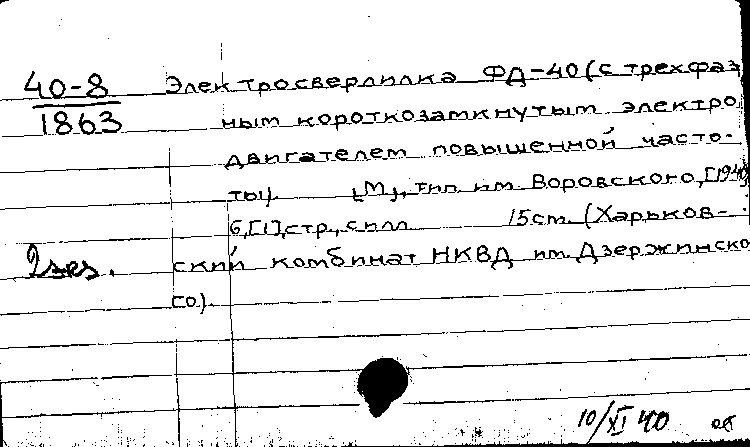 40-8
1863
Электросверлилка ФД-40 (с трехфаз
ным короткозамкнутым электро
двигателем повышенной часто-
ты). [М], тип. им. Воровского, [1940]
6, [1], стр., с илл. 15 см. (Харьков-
ский комбинат НКВД им. Дзержинско
го).
2 экз.
10/XI 40